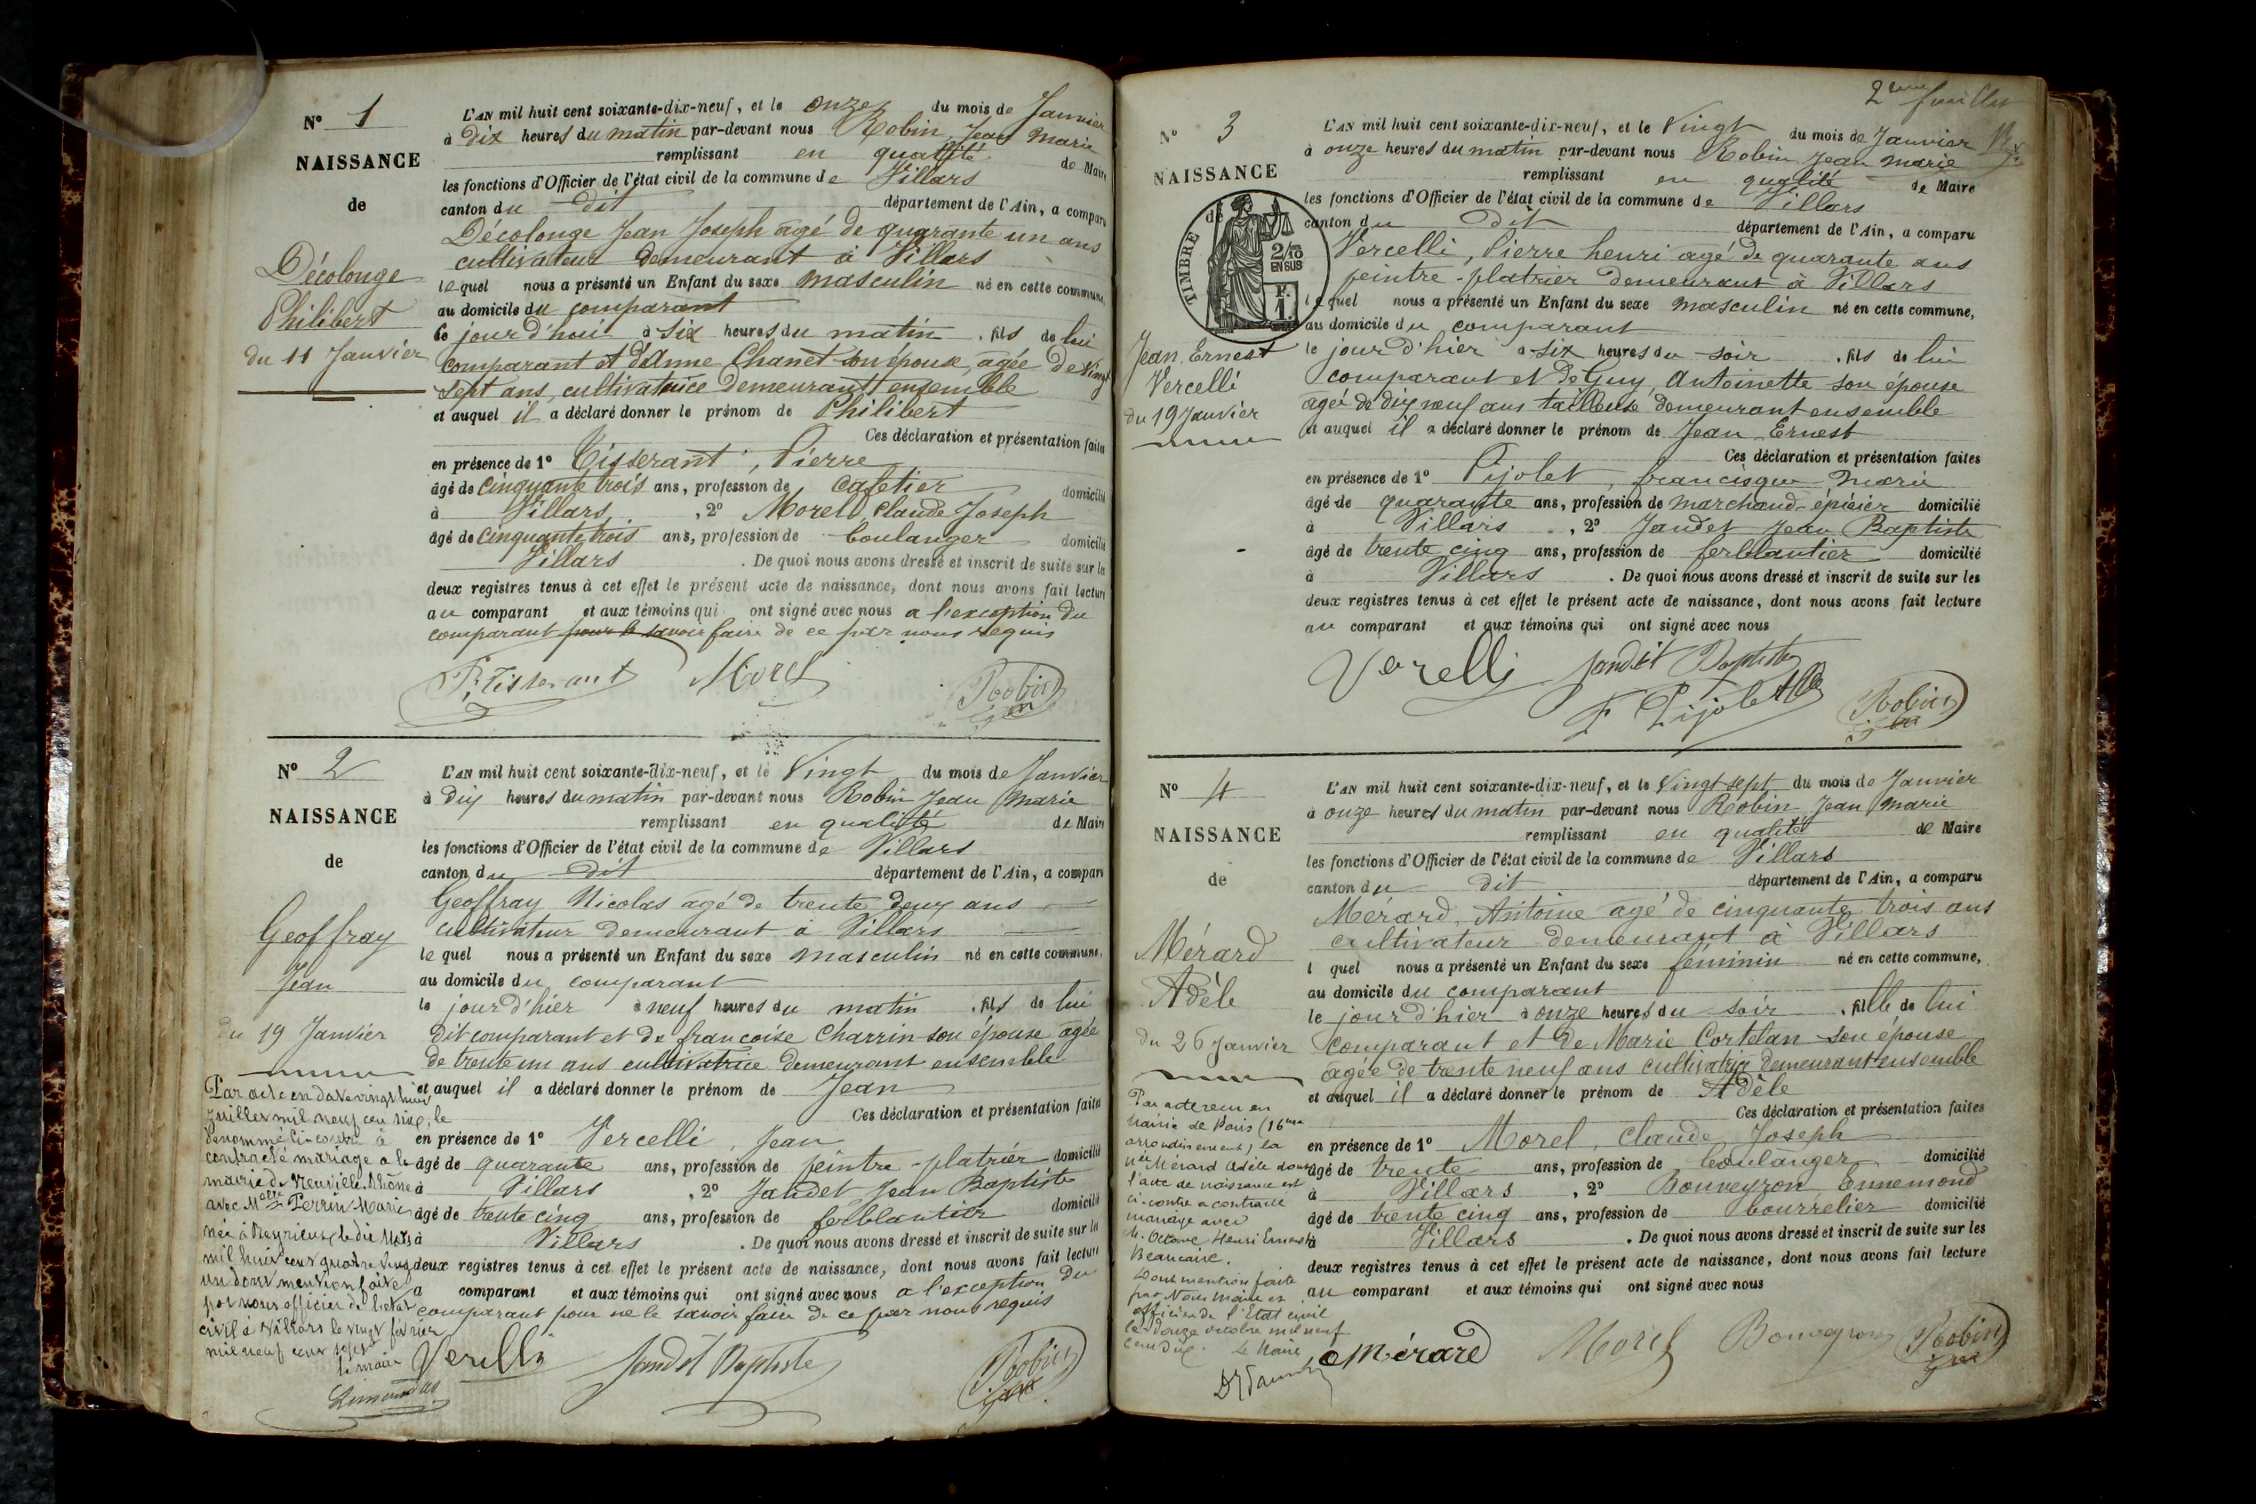 Nº 1
NAISSANCE
de
Décolonge
Philibert
du 11 Janvier
L'AN mil huit cent soixante-dix-neuf, et le onze du mois de Janvier
à dix heures du matin par-devant nous Robin, Jean Marie
remplissant en qualité de Maire
les fonctions d'Officier de l'état civil de la commune de Villars
canton du dit département de l'Ain, a comparu
Décolonge Jean Joseph âgé de quarante un ans
cultivateur demeurant à Villars
lequel nous a présenté un Enfant du sexe masculin né en cette commune,
au domicile du comparant
ce jourd'hui à six heures du matin, fils de lui
comparant et d'Anne Chanet son épouse, agée de vingt
sept ans, cultivatrice demeurant ensemble
et auquel il a déclaré donner le prénom de Philibert
Ces déclaration et présentation faites
en présence de 1º Tisserant, Pierre
âgé de cinquante trois ans, profession de cafetier domicilié
à Villars, 2º Morel Claude Joseph
âgé de cinquante trois ans, profession de boulanger domicilié
Villars. De quoi nous avons dressé et inscrit de suite sur les
deux registres tenus à cet effet le présent acte de naissance, dont nous avons fait lecture
au comparant et aux témoins qui ont signé avec nous a l'exception du
comparant pour le savoir faire de ce par nous requis
P. Tisserant Morel Robin
Nº 2
NAISSANCE
de
Geoffray
Jean
du 19 Janvier
L'AN mil huit cent soixante-dix-neuf, et le Vingt du mois de Janvier
à dix heures du matin par-devant nous Robin Jean Marie
remplissant en qualité de Maire
les fonctions d'Officier de l'état civil de la commune de Villars
canton du dit département de l'Ain, a comparu
Geoffray Nicolas agé de trente deux ans
cultivateur demeurant à Villars
lequel nous a présenté un Enfant du sexe masculin né en cette commune,
au domicile du comparant
le jour d'hier à neuf heures du matin, fils de lui
dit comparant et de françoise Charrin son épouse agée
de trente un ans cultivatrice demeurant ensemble
et auquel il a déclaré donner le prénom de Jean
Ces déclaration et présentation faites
en présence de 1º Vercelli, Jean
âgé de quarante ans, profession de peintre-platrier domicilié
à Villars, 2º Jandet Jean Baptiste
âgé de trente cinq ans, profession de ferblantier domicilié
à Villars. De quoi nous avons dressé et inscrit de suite sur les
deux registres tenus à cet effet le présent acte de naissance, dont nous avons fait lecture
a comparant et aux témoins qui ont signé avec nous a l'exception du
comparant pour ne le savoir faire de ce par nous requis
Verelli Jandet Baptiste Robin
Par acte en date vingt huit
juillet mil neuf cent six, le
dénommé ci-contre à
contracté mariage a la
mairie de Neuville, Rhône
avec Melle Perrin Marie
née à Reyrieux le dix Mars
mil huit cent quatre vingt
un dont mention faite
par nous officier de l'état
civil à Villars le vingt février
mil neuf cent sept
le maire
2ème feuillet
Nº 3
NAISSANCE
de
TIMBRE
2/10
EN SUS
F.
1.
Jean Ernest
Vercelli
du 19 Janvier
L'AN mil huit cent soixante-dix-neuf, et le Vingt du mois de Janvier
à onze heures du matin par-devant nous Robin Jean Marie
remplissant en qualité de Maire
les fonctions d'Officier de l'état civil de la commune de Villars
canton du dit département de l'Ain, a comparu
Vercelli, Pierre henri agé de quarante ans
peintre-platrier demeurant à Villars
lequel nous a présenté un Enfant du sexe masculin né en cette commune,
au domicile du comparant
le jour d'hier a six heures du soir, fils de lui
comparant et De Guy, Antoinette son épouse
agée de dix neuf ans tailleuse demeurant ensemble
et auquel il a déclaré donner le prénom de Jean Ernest
Ces déclaration et présentation faites
en présence de 1º Pijolet, françisque marie
âgé de quarante ans, profession de marchand-épicier domicilié
à Villars, 2º Jandet Jean Baptiste
âgé de trente cinq ans, profession de ferblantier domicilié
à Villars. De quoi nous avons dressé et inscrit de suite sur les
deux registres tenus à cet effet le présent acte de naissance, dont nous avons fait lecture
au comparant et aux témoins qui ont signé avec nous
Verelli Jandet Baptiste
F Pijolet Robin
Nº 4
NAISSANCE
de
Mérard
Adèle
du 26 Janvier
L'AN mil huit cent soixante-dix-neuf, et le Vingt sept du mois de Janvier
à onze heures du matin par-devant nous Robin Jean Marie
remplissant en qualité de Maire
les fonctions d'Officier de l'état civil de la commune de Villars
canton du dit département de l'Ain, a comparu
Mérard, Antoine agé de cinquante trois ans
cultivateur demeurant à Villars
l quel nous a présenté un Enfant du sexe féminin né en cette commune,
au domicile du comparant
le jour d'hier à onze heures du soir, fille de lui
comparant et de Marie Cortelan son épouse
agée de trente neuf ans cultivatrice demeurant ensemble
et auquel il a déclaré donner le prénom de Adèle
Ces déclaration et présentation faites
en présence de 1º Morel, Claude Joseph
âgé de trente ans, profession de boulanger domicilié
à Villars, 2º Bouveyron Ennemond
âgé de trente cinq ans, profession de bourrelier domicilié
à Villars. De quoi nous avons dressé et inscrit de suite sur les
deux registres tenus à cet effet le présent acte de naissance, dont nous avons fait lecture
au comparant et aux témoins qui ont signé avec nous
Mérard Morel Bouveyron Robin
Par acte reçu en
mairie de Paris (16me
arrondissement) la
née Mérard Adèle dont
l'acte de naissance est
ci-contre a contracté
mariage avec
M. Octave Henri Ernest
Beaucaire.
Dont mention faite
par Nous Maire et
officier de l'Etat civil
le douze octobre mil neuf
cent dix. Le Maire